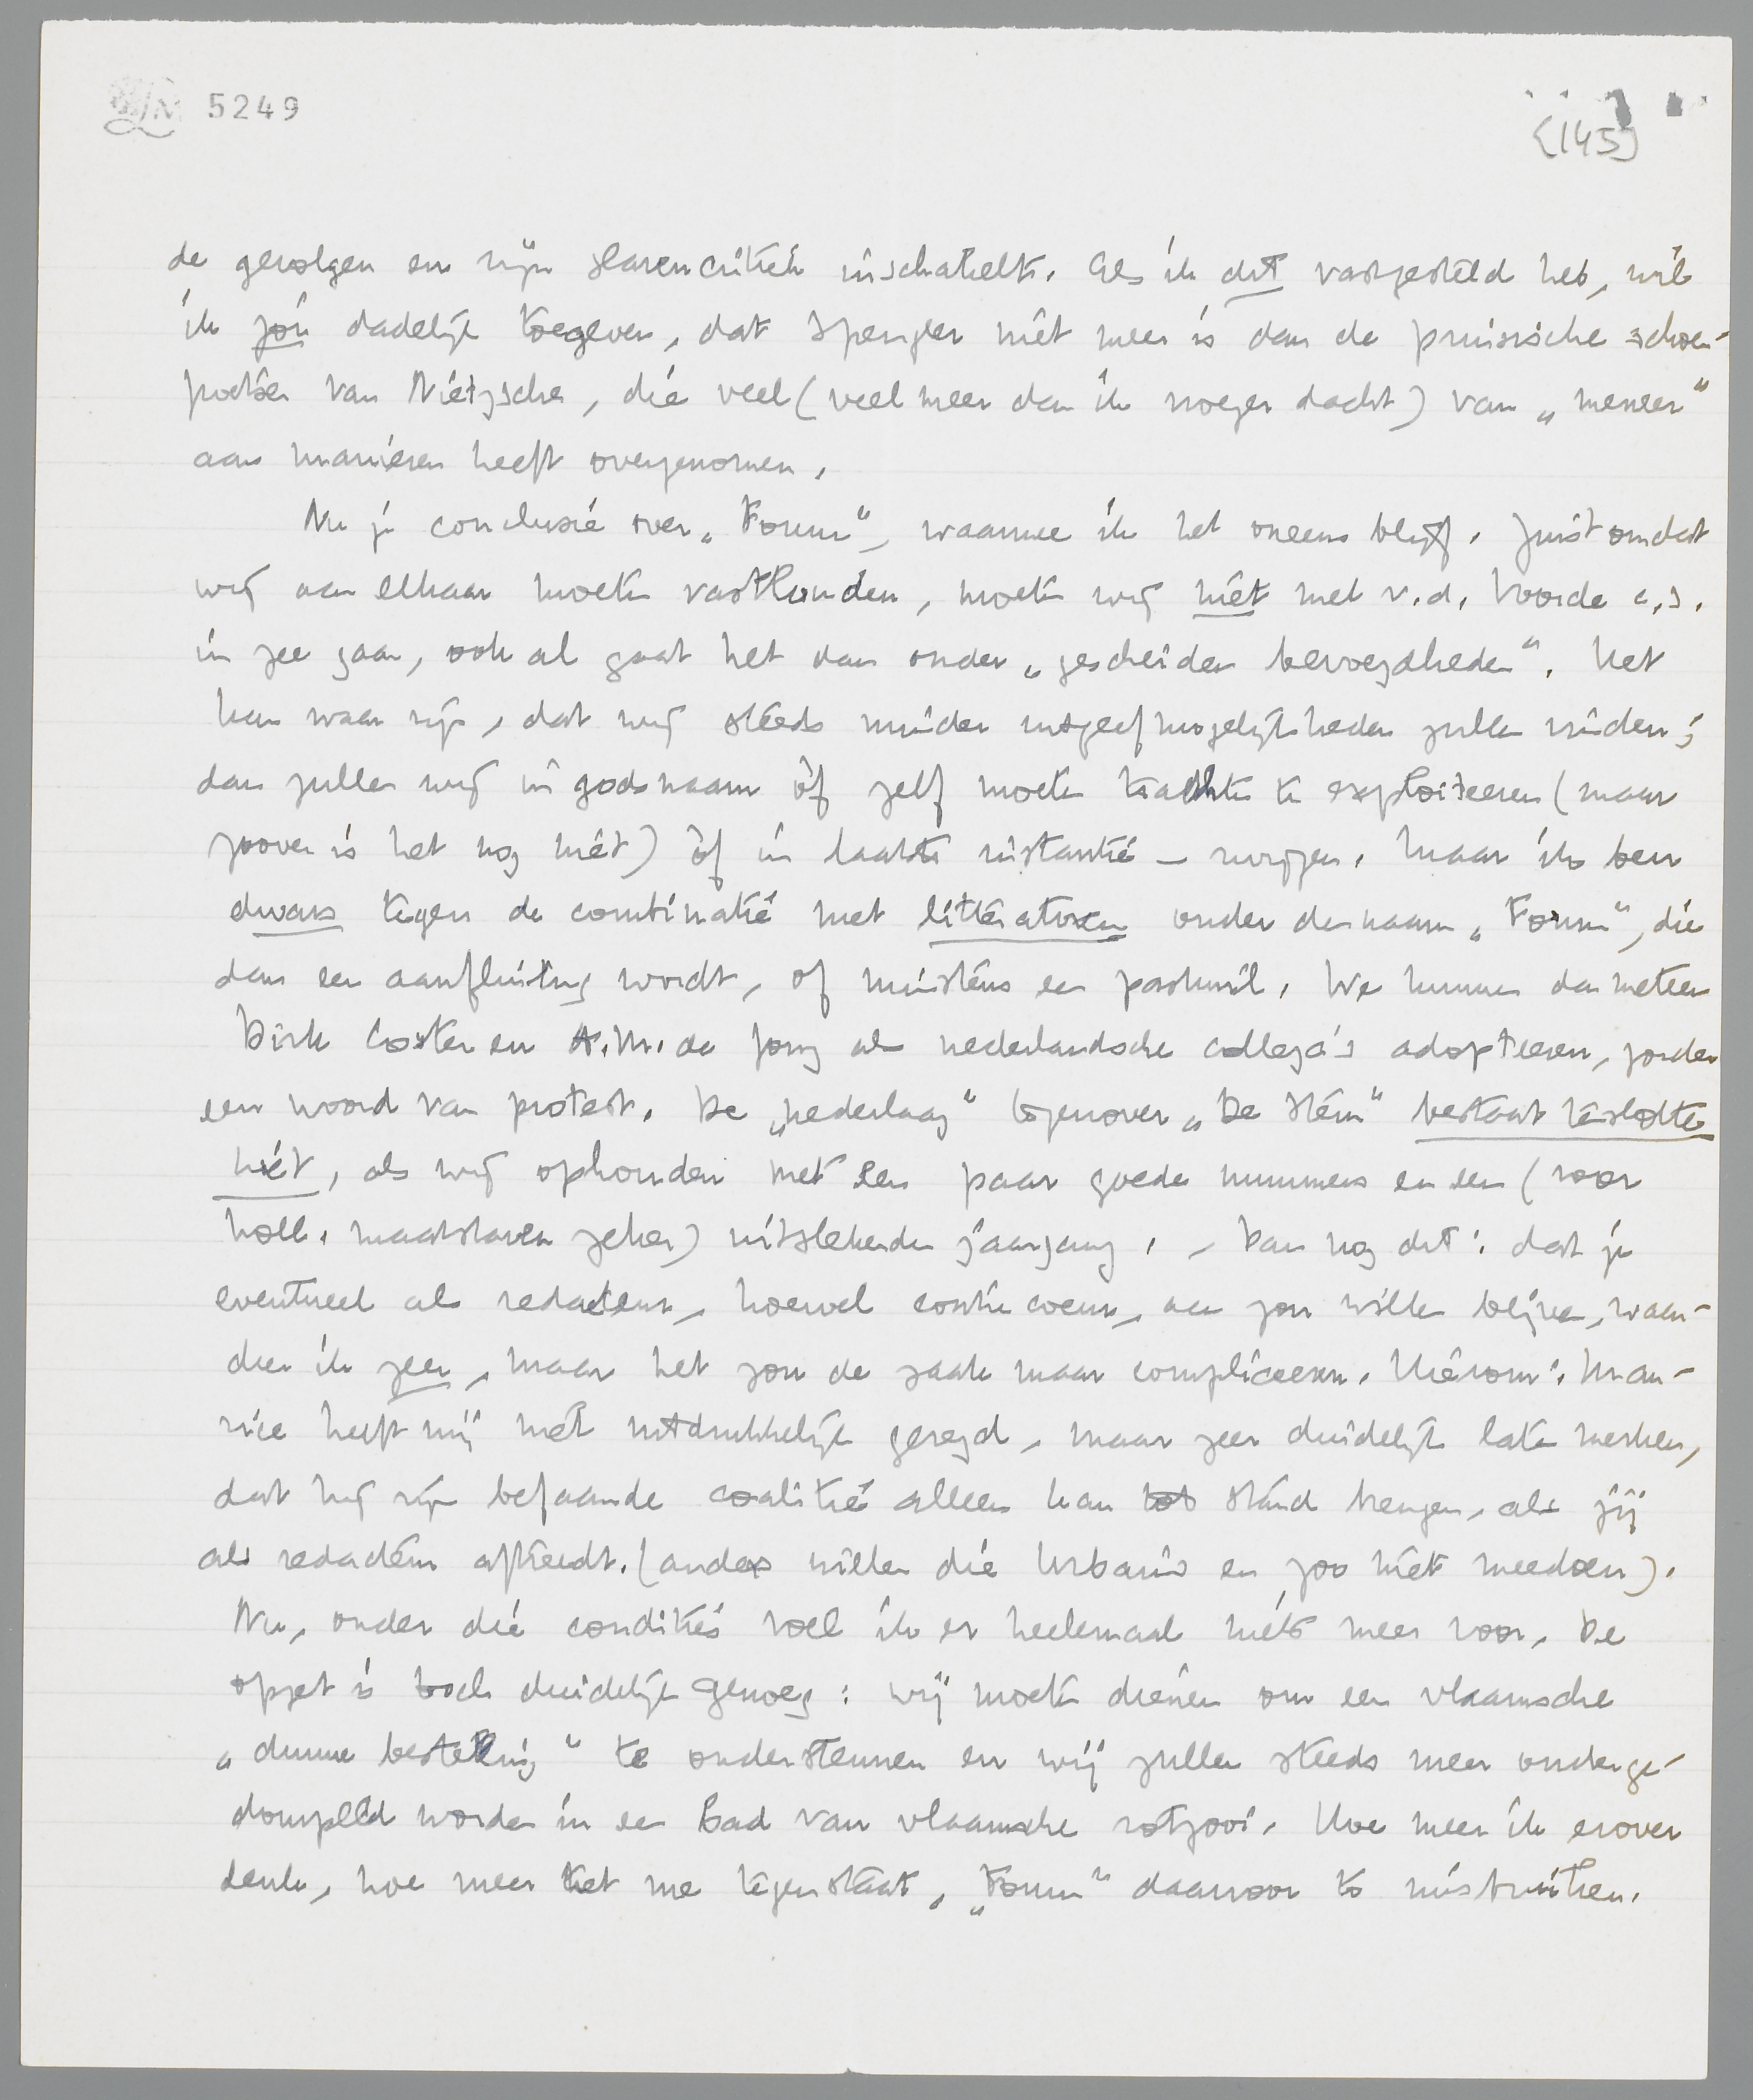 5249
{145}
de gevolgen en zijn slavencritiek inschakelt. Als ik dat vastgesteld heb, wil
ik jou dadelijk toegeven, dat Spengler niet meer is dan de pruisische schoen-
poetser van Nietzsche, die veel (veel meer dan ik vroeger dacht) van „meneer"
aan manieren heeft overgenomen.
Nu je conclusie over „Forum", waarmee ik het oneens blijf. Juist omdat
wij aan elkaar moeten vasthouden, moeten wij niet met v.d. Voorde c.s.
in zee gaan, ook al gaat het dan onder „gescheiden bevoegdheden". Het
kan waar zijn, dat wij steeds minder uitgeefmogelijkheden zullen vinden;
dan zullen wij in godsnaam òf zelf moeten trachten te exploiteeren (maar
zoover is het nog niet) òf in laatste instantie – zwijgen. Maar ik ben
dwars tegen de combinatie met litteratoren onder den naam „Forum", die
dan een aanfluiting wordt, of minstens een paskwil. We kunnen dan meteen
Dirk Coster en A.M. de Jong als nederlandsche collega's adopteeren, zonder
een woord van protest. De „nederlaag" tegenover „De Stem" bestaat tenslotte
niet, als wij ophouden met een paar goede nummers en een (voor
holl. maatstaven zeker) uitstekenden jaargang. – Dan nog dit: dat je
eventueel als redacteur, hoewel contre coeur, aan zou willen blijven, waar-
deer ik zeer, maar het zou de zaak maar compliceeren. Hierom: Mau-
rice heeft mij niet uitdrukkelijk gezegd, maar zeer duidelijk laten merken,
dat hij zijn befaamde coalitie alleen kan tot stand brengen, als jij
als redacteur aftreedt. (anders willen die Urbain's en zoo niet meedoen).
Nu, onder die condities voel ik er heelemaal niets meer voor. De
opzet is toch duidelijk genoeg: wij moeten dienen om een vlaamsche
„dunne bestelling" te ondersteunen en wij zullen steeds meer onderge-
dompeld worden in een bad van vlaamsche rotzooi. Hoe meer ik erover
denk, hoe meer het me tegenstaat, „Forum" daarvoor te misbruiken.